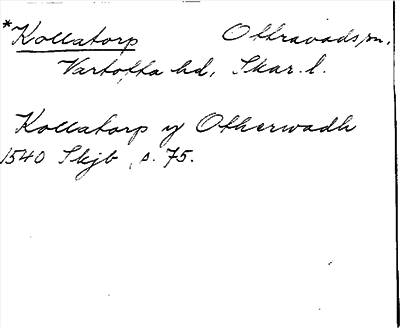 *Kollatorp Ottravads sn.
Vartofta hd, Skar. l.
Kollatorp y Otherwadh
1540 Skjb, s. 75.